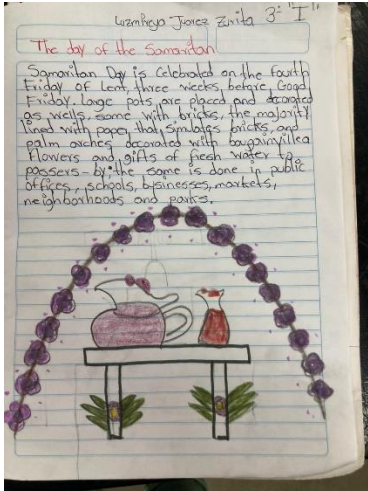 Luzmireya Juarez Zurita 3º "I"
The day of the Samaritan
Samaritan Day is celebrated on the fourth
Friday of Lent, three weeks before Good
Friday. Large pots are placed and decorated
as wells, some with bricks, the majority
lined with paper that simulates bricks, and
palm arches decorated with bougainvillea
Flowers and gifts of fresh water to
passers-by the same is done in public
offices, schools, businesses, markets,
neighborhoods and parks.